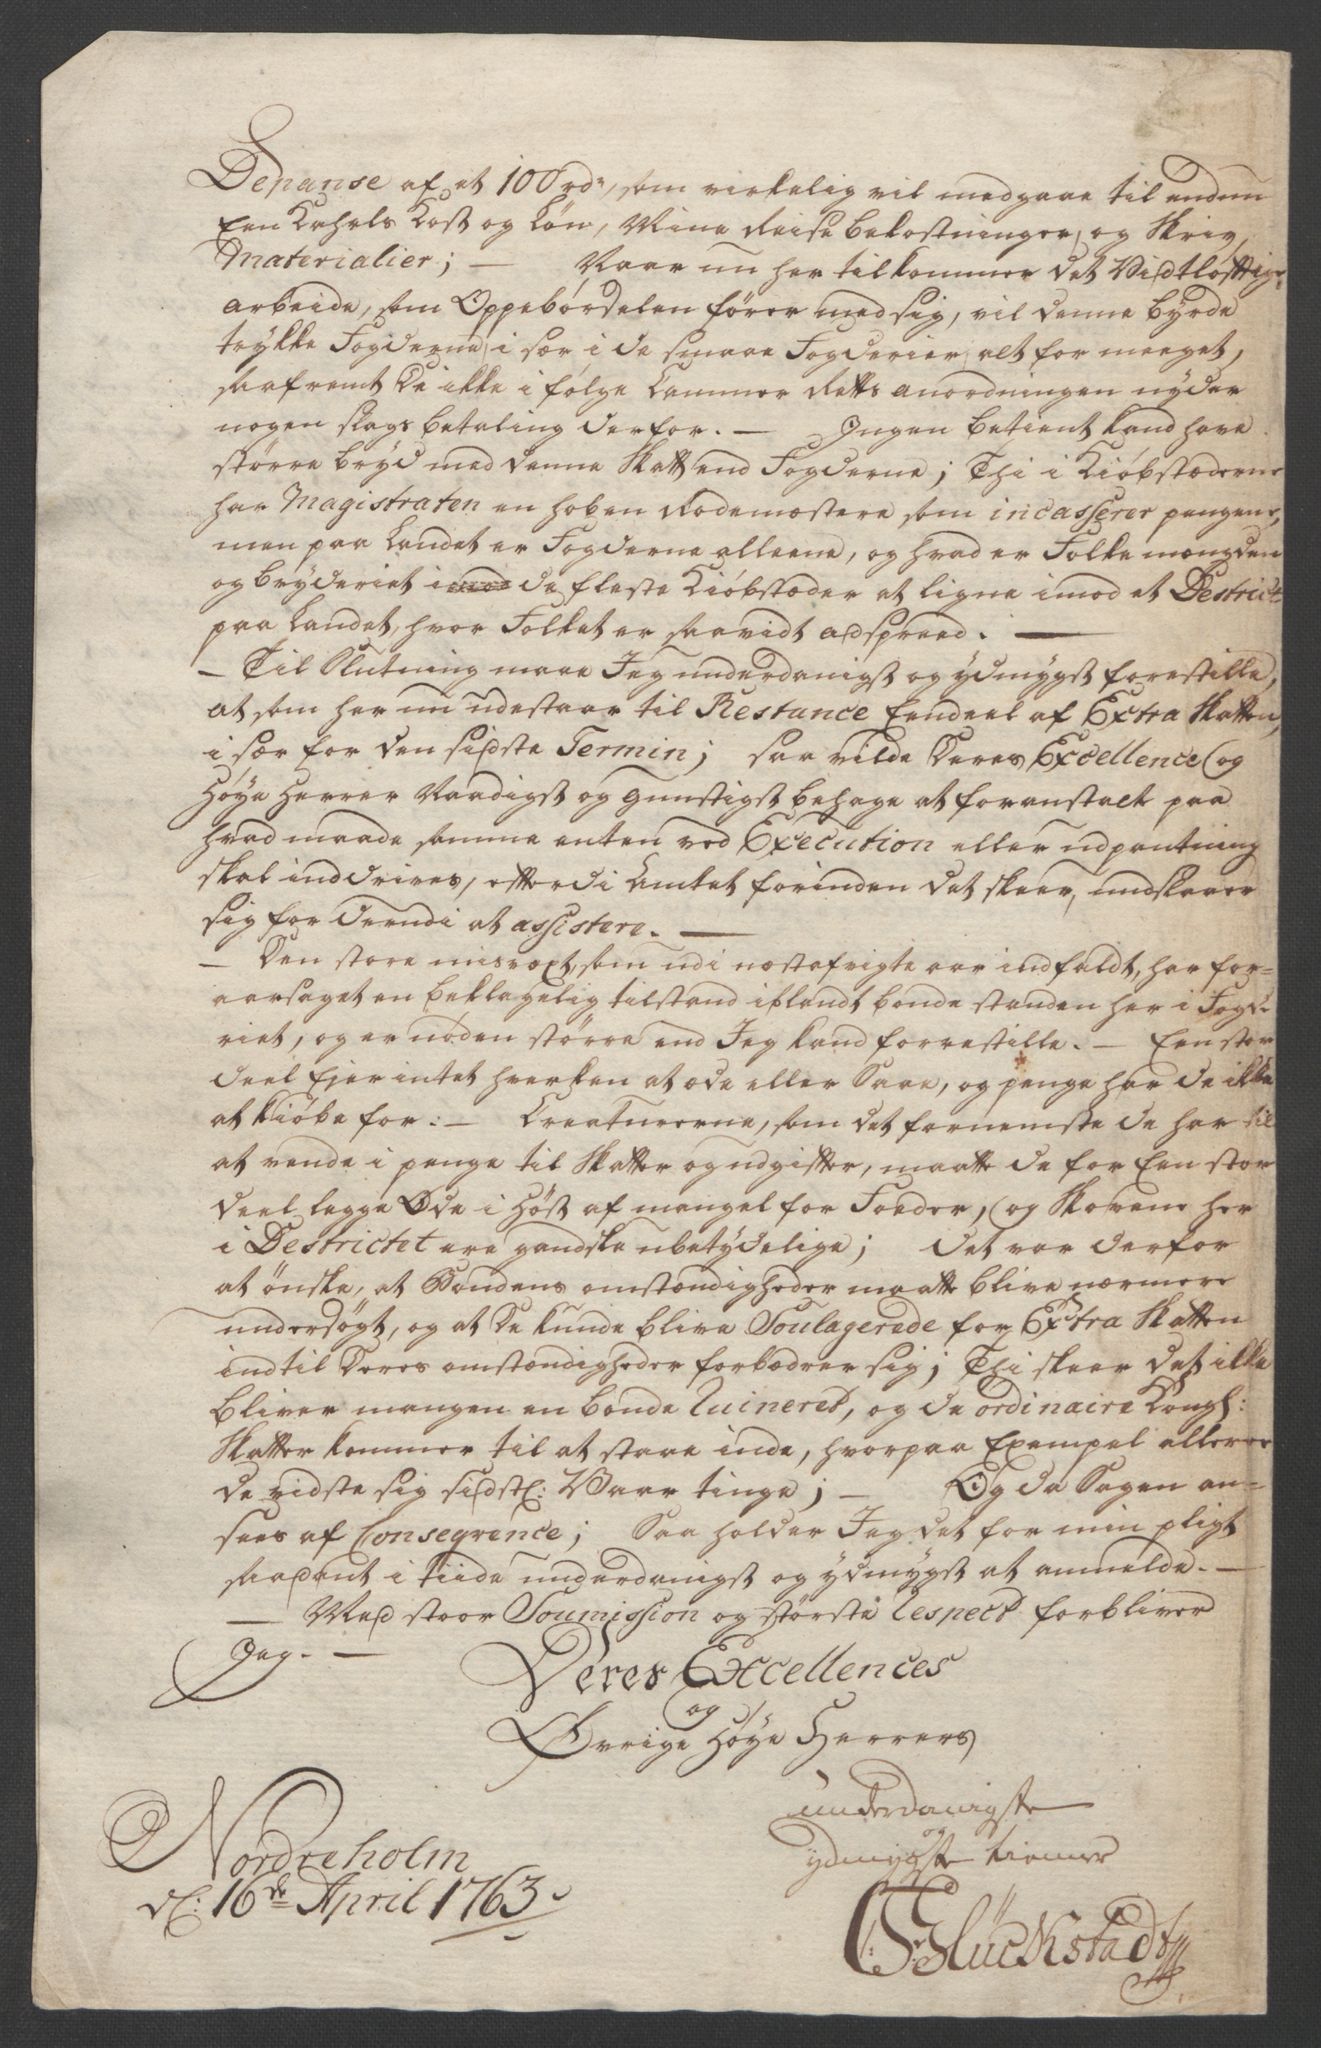 Depanse af et 100 rd:, som virkelig vil medgaae til endnu
Een Karls Kost og Løn, Mine Reise bekostninger, og Skriv,
Materialier; — Naar nu her tilkommer det Vidtløftige
arbeide, som Oppebørselen fører med sig, vil denne byrde
trykke Fogderne, i sær i de smaae Fogderier, alt for meeget,
saafremt De ikke i følge Cammer Retts anordningen nyder
nogen slags betaling derfor. — Ingen betient kand have
større bryd med denne Skatt end Fogderne; Thi i Kiøbstæderne
har Magistraten en hoben Rodemestere som incasserer pengene,
men paa Landet er Fogderne alleene, og hvad er Folke mængden
og bryderiet i de fleste Kiøbstæder at ligne imod et Destrict
paa Landet, hvor Folket er saavidt adspreed. —
— Til Slutning maae Jeg underdanigst og ydmygst forestille,
at som her nu udestaar til Restance Eendeel af Extra Skatten,
i sær for den sidste Termin; saa vilde Deres Excellence og
Høye Herrer Naadigst og gunstigst behage at foranstalte paa
hvad maade samme enten ved Execution eller udpantning
skal inddrives, efterdi Amtet forinden det skeer, undslaaer
sig for derudi at assistere. —
— Den store misvæxt, som udi næstafvigte aar indfaldt, har for=
aarsaget en beklagelig tilstand iblandt bonde standen her i Fogde
riet, og er nøden større end Jeg kand forrestille. — Een stor
deel Ejer intet hverken at æde eller Saae, og penge har de ikke
at kiøbe for: — Creaturerne, som det fornemste de har til
at vende i penge til Skatter og udgifter, maatte de for Een stor
deel legge Øde i Høst af mangel for Foeder, og Skovene her
i Destrictet ere gandske ubetydelige; det var derfor
at ønske, at Bondens omstændigheder maatte blive nærmere
undersøgt, og at De kunde blive Soulagerede for Extra Skatten
indtil Deres omstændigheder forbædrer sig; Thi skeer det ikke
bliver mangen en bonde Ruineret, og de ordinaire Kongl:
Skatter kommer til at staae inde, hvorpaa Exempel allere
de vidste sig sidstl: Vaar tinge; — Og da Sagen an=
sees af Conseqvence; Saa holder Jeg det for min pligt
saadant i tiide underdanigst og ydmygst at anmelde. —
— Med stoor Soumission og største Respect forbliver
Jeg. —
Deres Excellences
og
Øvrige Høye Herrers
underdanigste
og
ydmygste tiener
Nordreholm
d: 16de April 1763.
Glückstadt